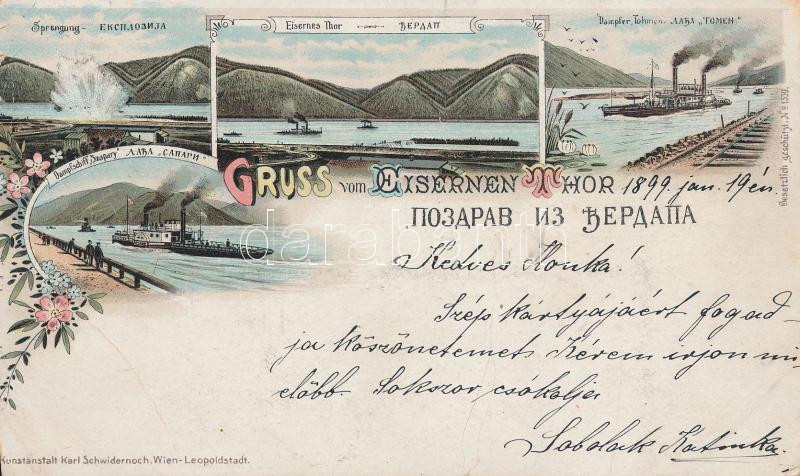 Sprengung - ЕКСПЛОЗИЈА
Eisernes Thor — ЂЕРДАП
Dampfer Tohmen. ЛАЂА „ТОМЕН"
Gesetzlich geschützt. № 1359.
Dampfschiff Szapary ЛАЂА „САПАРИ"
GRUSS VOM EISERNEN THOR 1899 jan. 19én
ПОЗДРАВ ИЗ ЂЕРДАПА
darabanth
Kedves Monka!
Szép kártyájáért fogad-
ja köszönetemet. Kérem irjon mi-
előbb. Sokszor csókolja
Sobolak Katinka.
Kunstanstalt Karl Schwidernoch, Wien-Leopoldstadt.